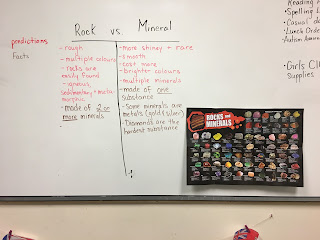 Rock vs. Mineral
predictions
Facts
- rough
- multiple colours
- rocks are
easily found
- igneous,
sedimentary + meta
morphic
- made of 2 or
more minerals
- more shiney + rare
- smooth
- cost more
- brighter colours
- multiple minerals
- made of one
substance
- Some minerals are
metals (gold & silver)
- Diamonds are the
hardest substance
ROCKS AND
MINERALS
- Reading
- Spelling
- Casual d
- Lunch Order
- Autism Aware
- Girls Cl
Supplies